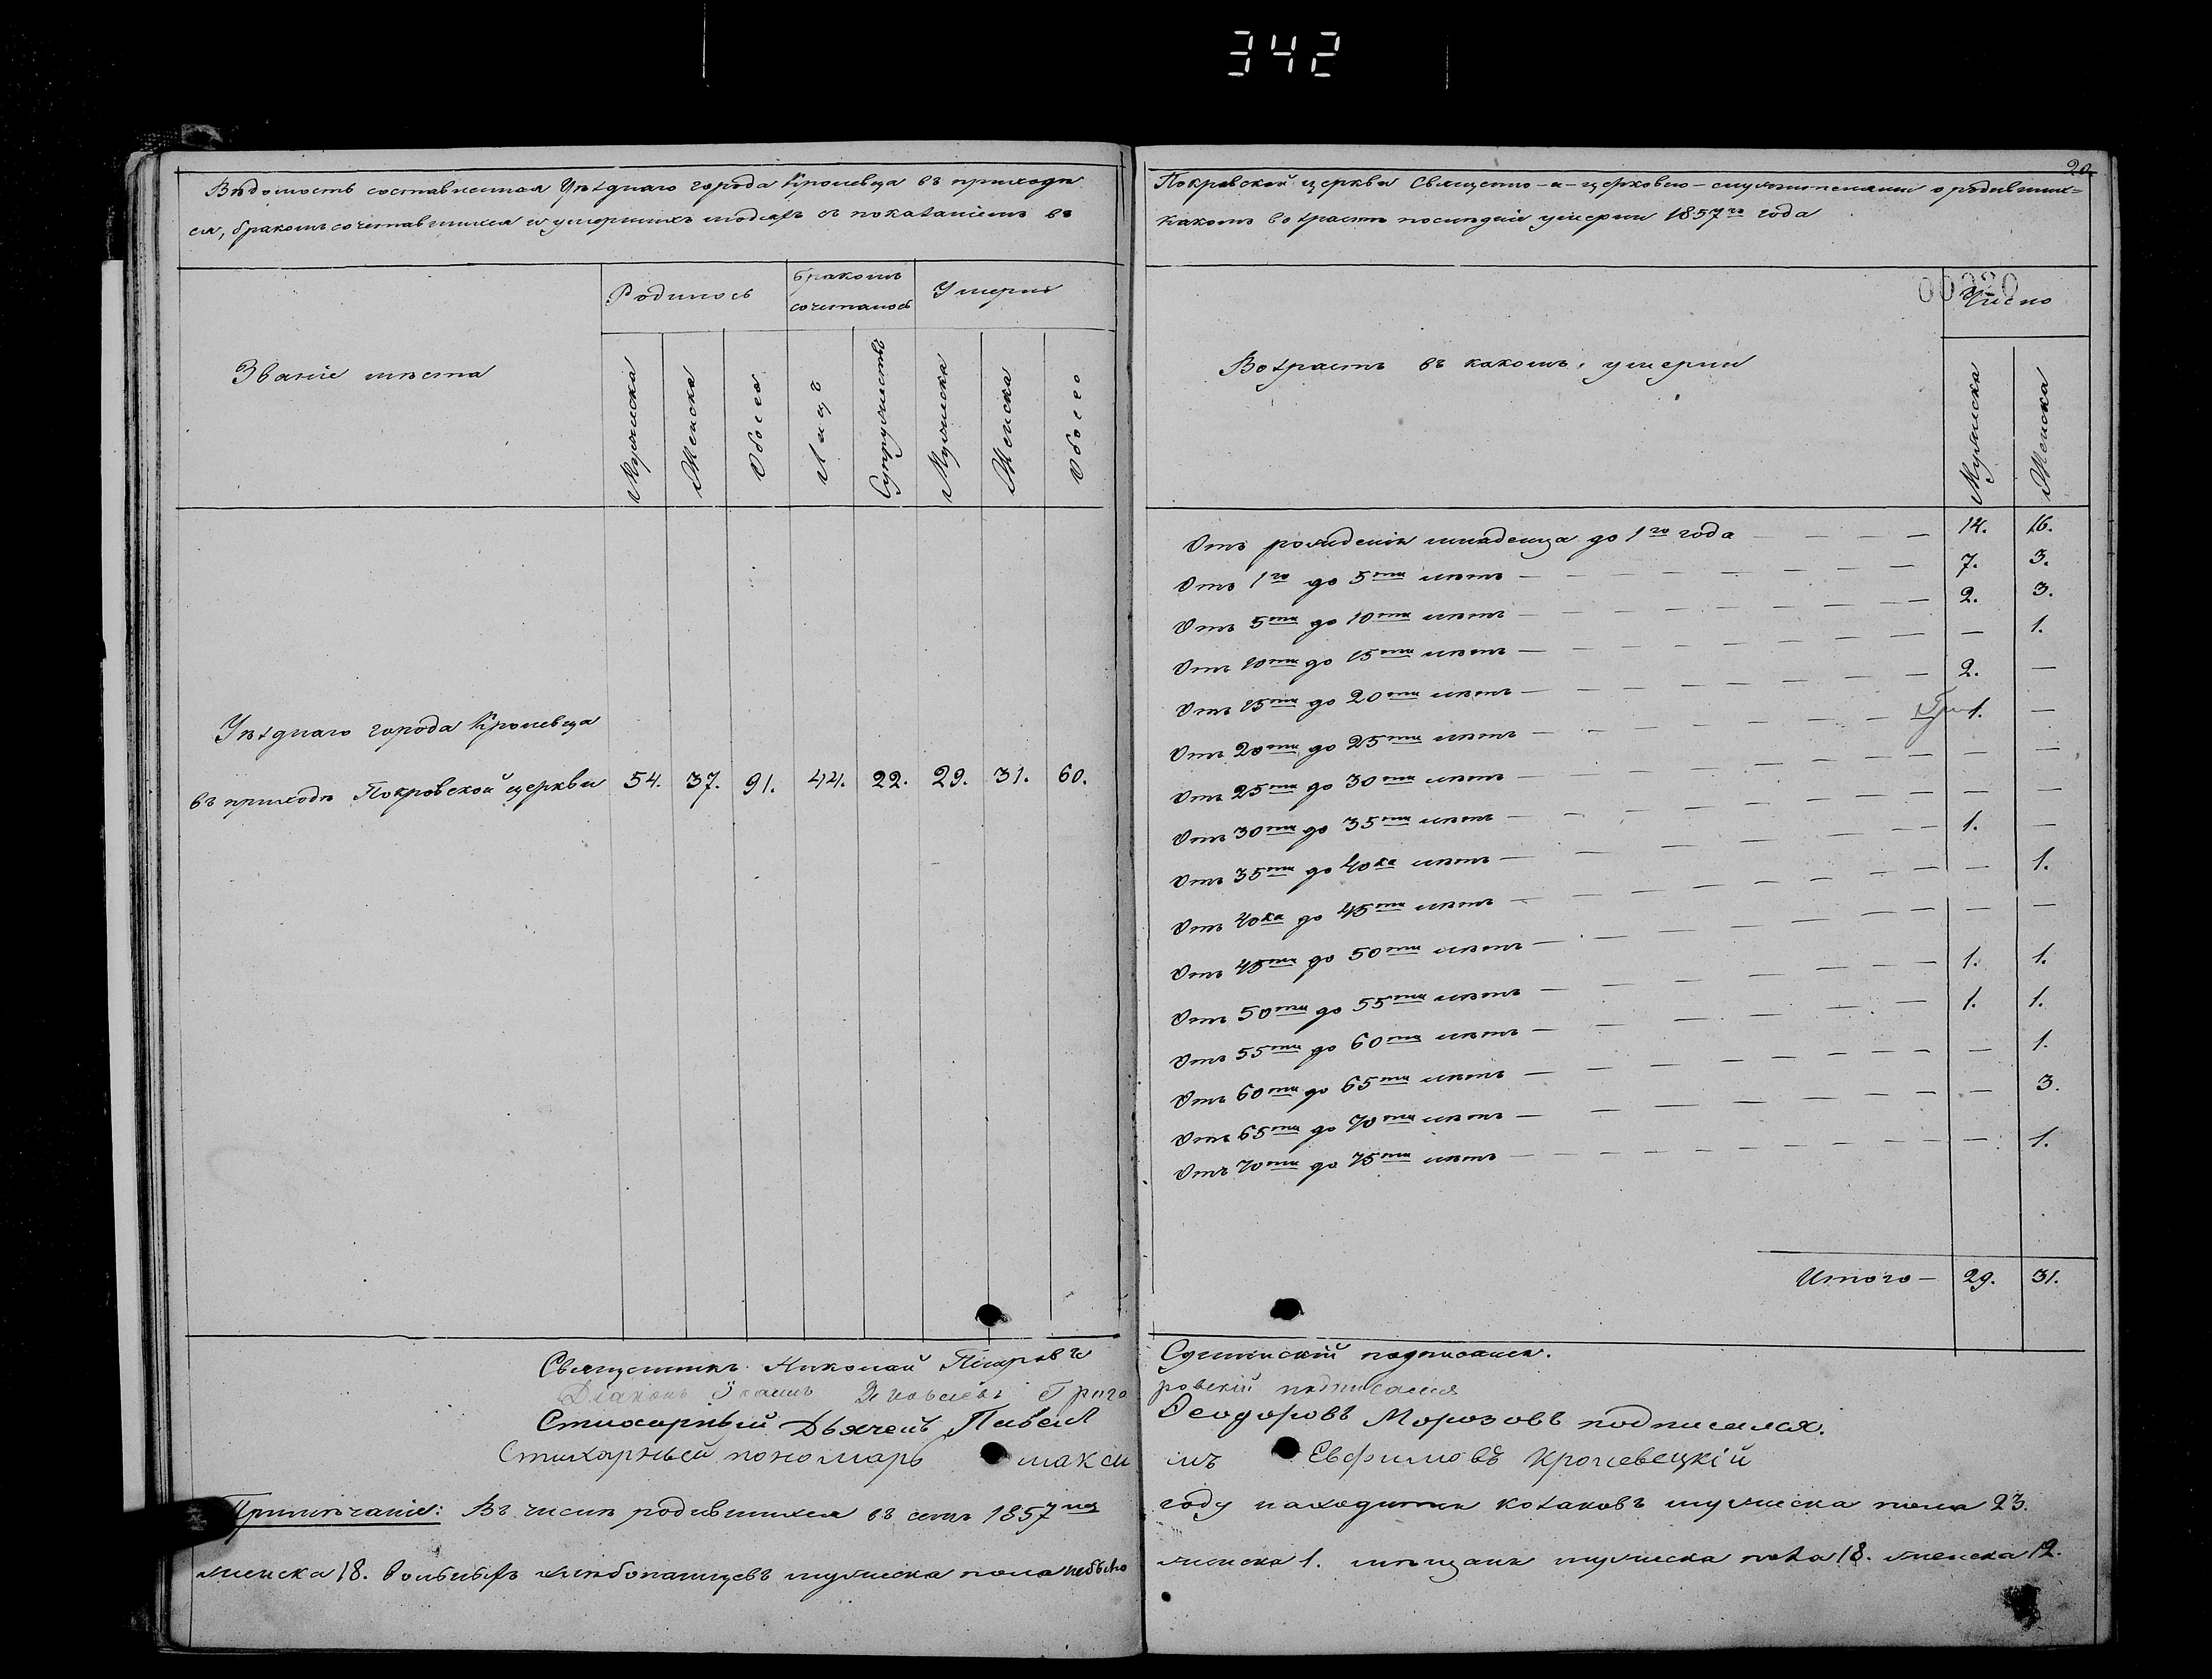 342
20
Вѣдомость составленная Уѣзднаго города Кролевца въ приходѣ
Покровской церкви Священно-и-церковно-служителями о родивших=
ся, бракомъ сочетавшихся и умершихъ людяхъ съ показаніемъ въ
какомъ возрастѣ послѣдніе умерли 1857го года
Званіе мѣста
Родилось
бракомъ сочеталось
Умерло
Мужеска
Женска
Обоего
Лицъ
Супружествъ
Мужеска
Женска
Обоего
Уѣзднаго города Кролевца
въ приходѣ Покровской церкви 54. 37. 91. 44. 22. 29. 31. 60.
Возрастъ въ какомъ умерли
00020
Число
Мужеска
Женска
Отъ рожденія младенца до 1го года — — — — 14. 16.
Отъ 1го до 5ти лѣтъ — — — — 7. 3.
Отъ 5ти до 10ти лѣтъ — — — — 2. 3.
Отъ 10ти до 15ти лѣтъ — — — — — 1.
Отъ 15ти до 20ти лѣтъ — — — — 2. —
Отъ 20ти до 25ти лѣтъ — — — — 1. —
Отъ 25ти до 30ти лѣтъ — — — — — —
Отъ 30ти до 35ти лѣтъ — — — — — —
Отъ 35ти до 40ка лѣтъ — — — — 1. —
Отъ 40ка до 45ти лѣтъ — — — — — 1.
Отъ 45ти до 50ти лѣтъ — — — — — —
Отъ 50ти до 55ти лѣтъ — — — — 1. 1.
Отъ 55ти до 60ти лѣтъ — — — — 1. 1.
Отъ 60ти до 65ти лѣтъ — — — — — 1.
Отъ 65ти до 70ти лѣтъ — — — — — 3.
Отъ 70ти до 75ти лѣтъ — — — — — 1.
Итого — 29. 31.
Священникъ Николай Петровъ
подписался.
Діаконъ Іоаннъ Яковлевъ Григо
ровскій подписался
Стихарный Дьячекъ Павелъ
Ѳеодоровъ Морозовъ подписался.
Стихарный пономарь Макси
мъ Евфимовъ Кролевецкій
Примѣчаніе: Въ числѣ родившихся въ семъ 1857мъ
году находится козаковъ мужеска пола 23.
женска 18. вольныхъ хлѣбопашцевъ мужеска пола небыло
женска 1. мѣщанъ мужеска пола 18. женска 12.